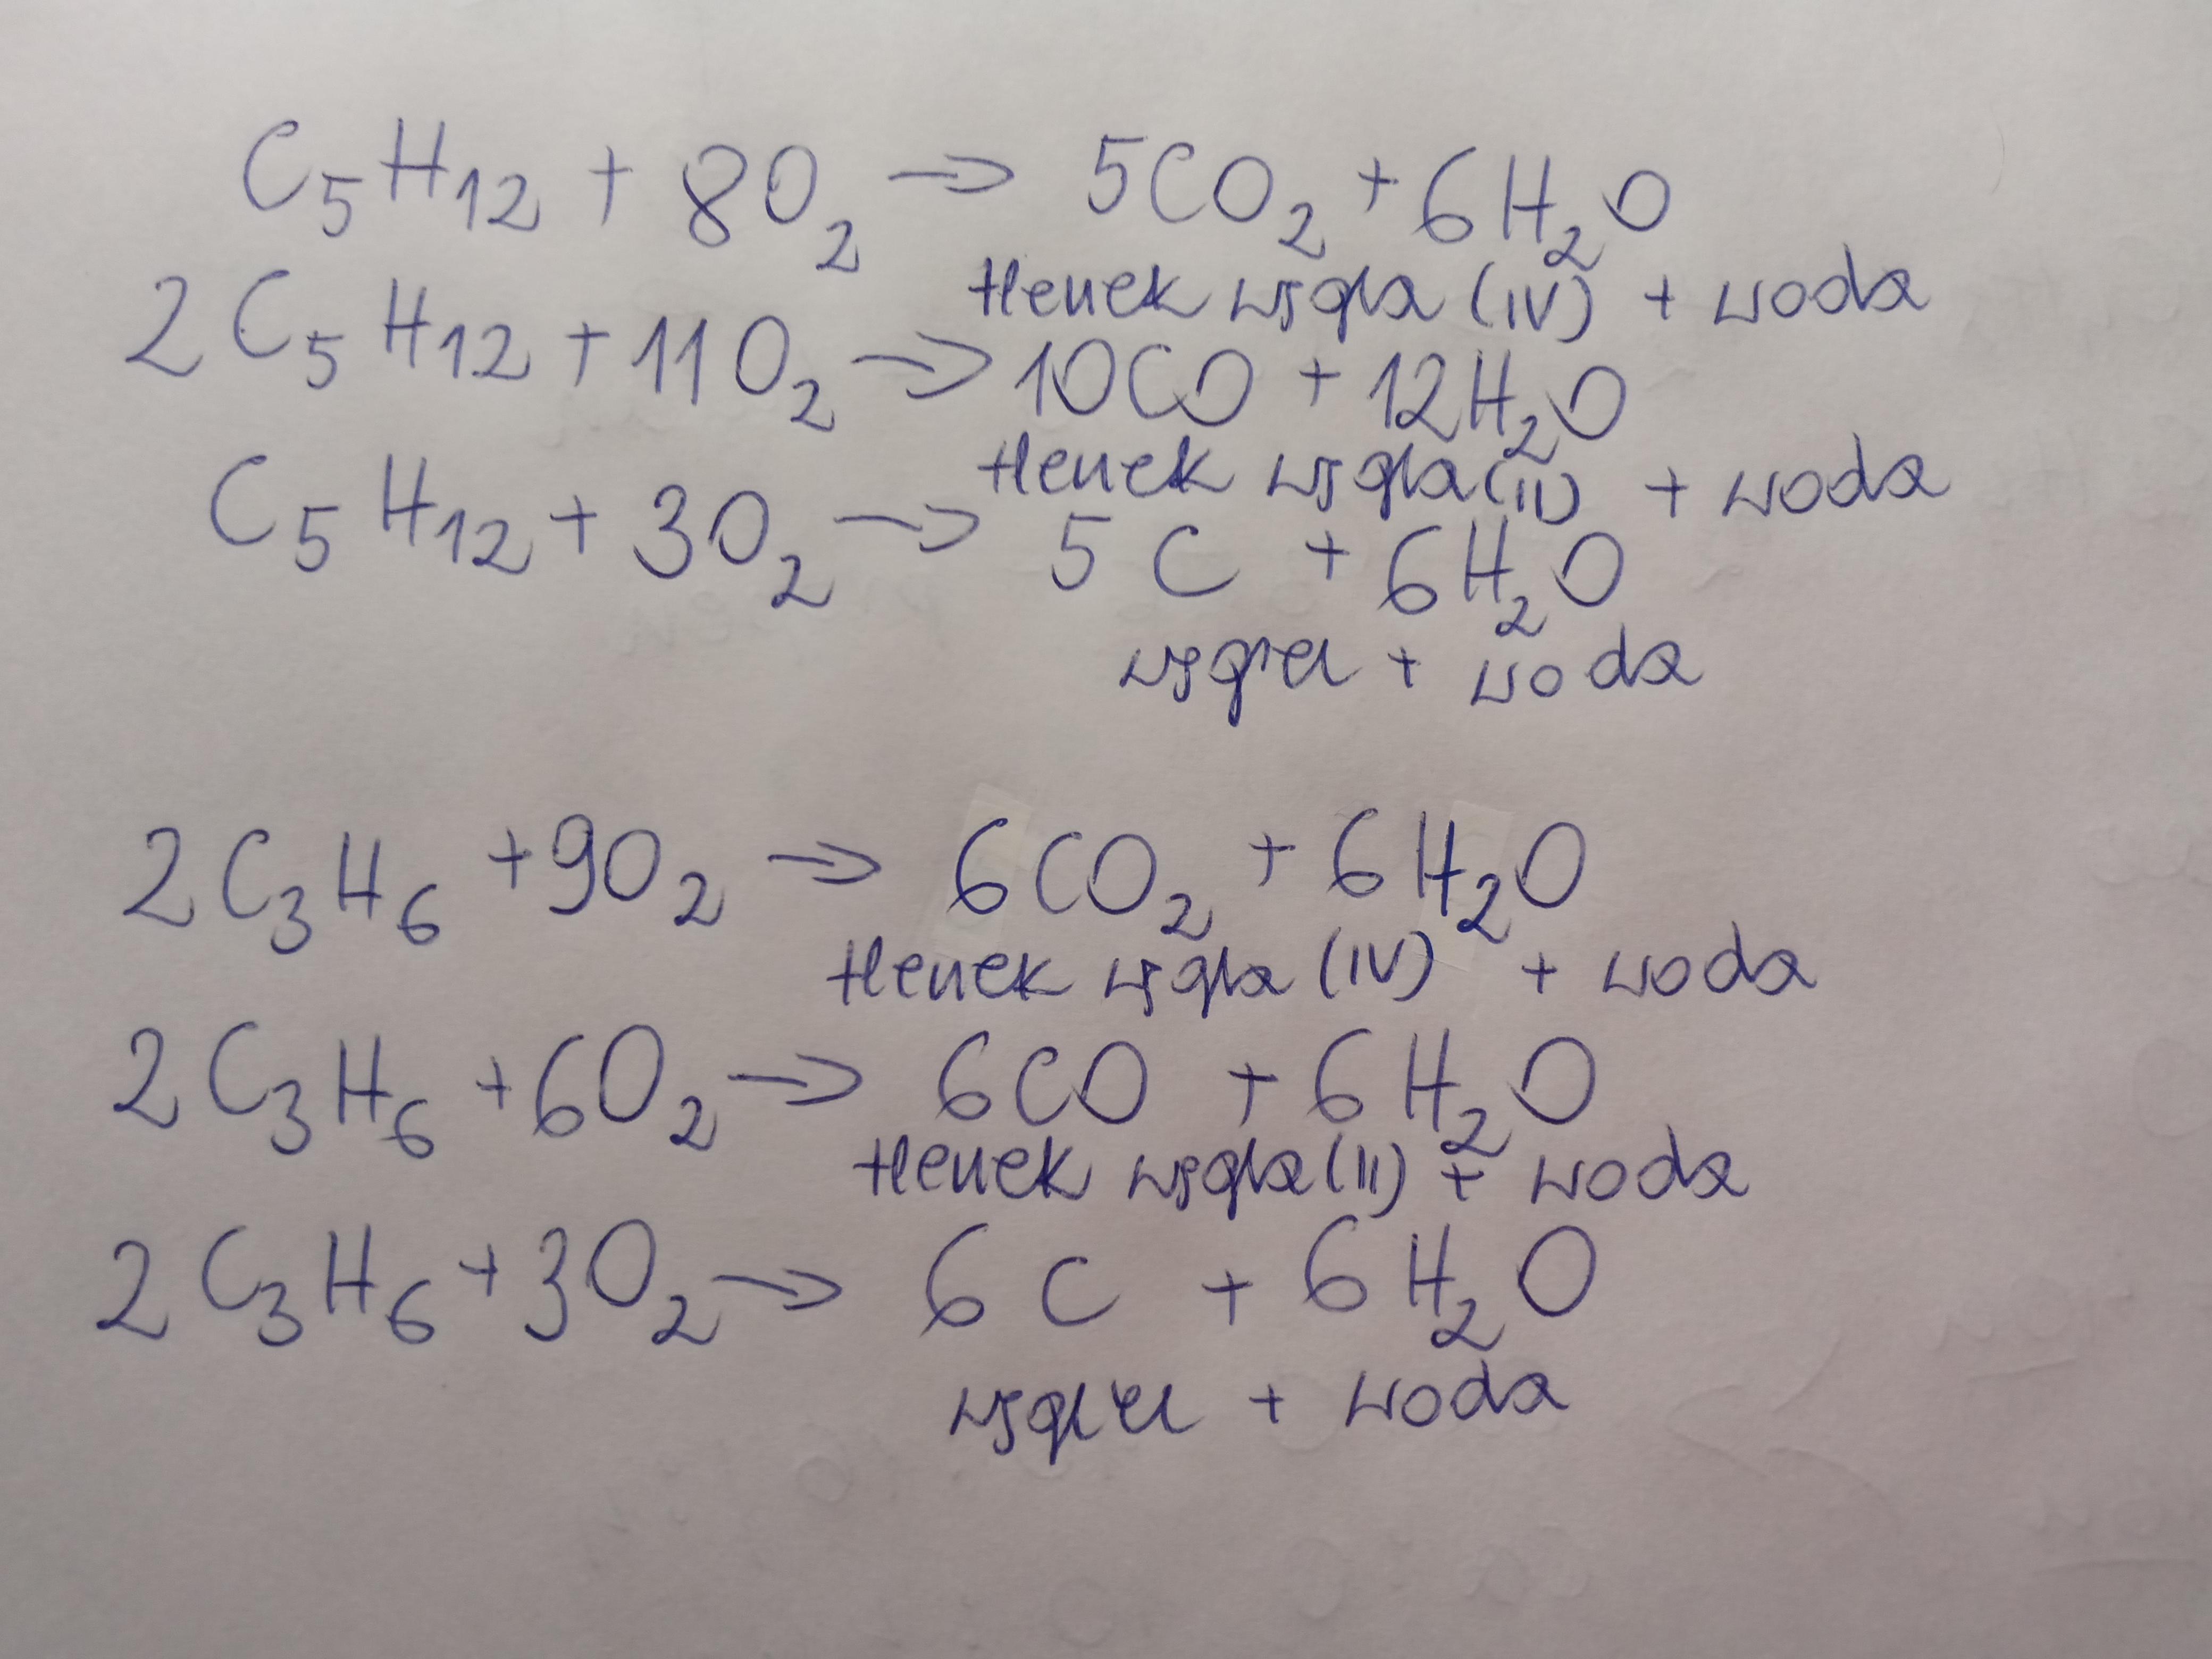 C₅H₁₂ + 8O₂ → 5CO₂ + 6H₂O
tlenek węgla (IV) + woda
2C₅H₁₂ + 11O₂ → 10CO + 12H₂O
tlenek węgla (II) + woda
C₅H₁₂ + 3O₂ → 5C + 6H₂O
węgiel + woda
2C₃H₆ + 9O₂ → 6CO₂ + 6H₂O
tlenek węgla (IV) + woda
2C₃H₆ + 6O₂ → 6CO + 6H₂O
tlenek węgla (II) + woda
2C₃H₆ + 3O₂ → 6C + 6H₂O
węgiel + woda